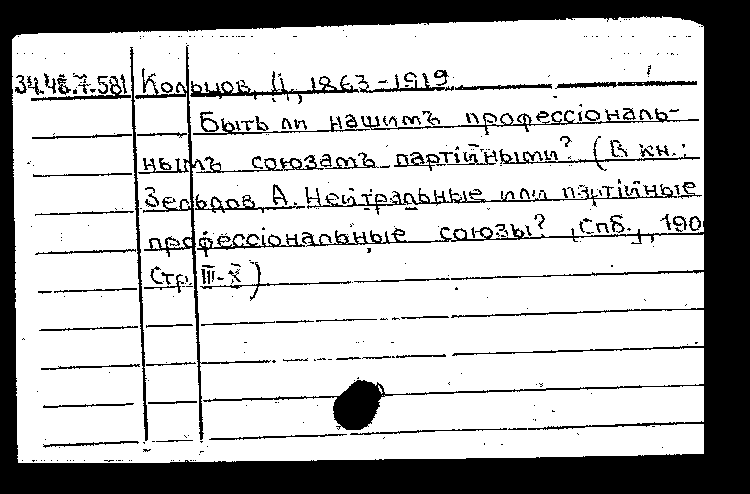 34.48.7.581 Кольцов, Д., 1863-1919
Быть ли нашимъ профессіональ-
нымъ союзамъ партійными? (В кн.:
Зельцов, А. Нейтральные или партійные
профессіональные союзы? [Спб.], 190
Стр. III-X)